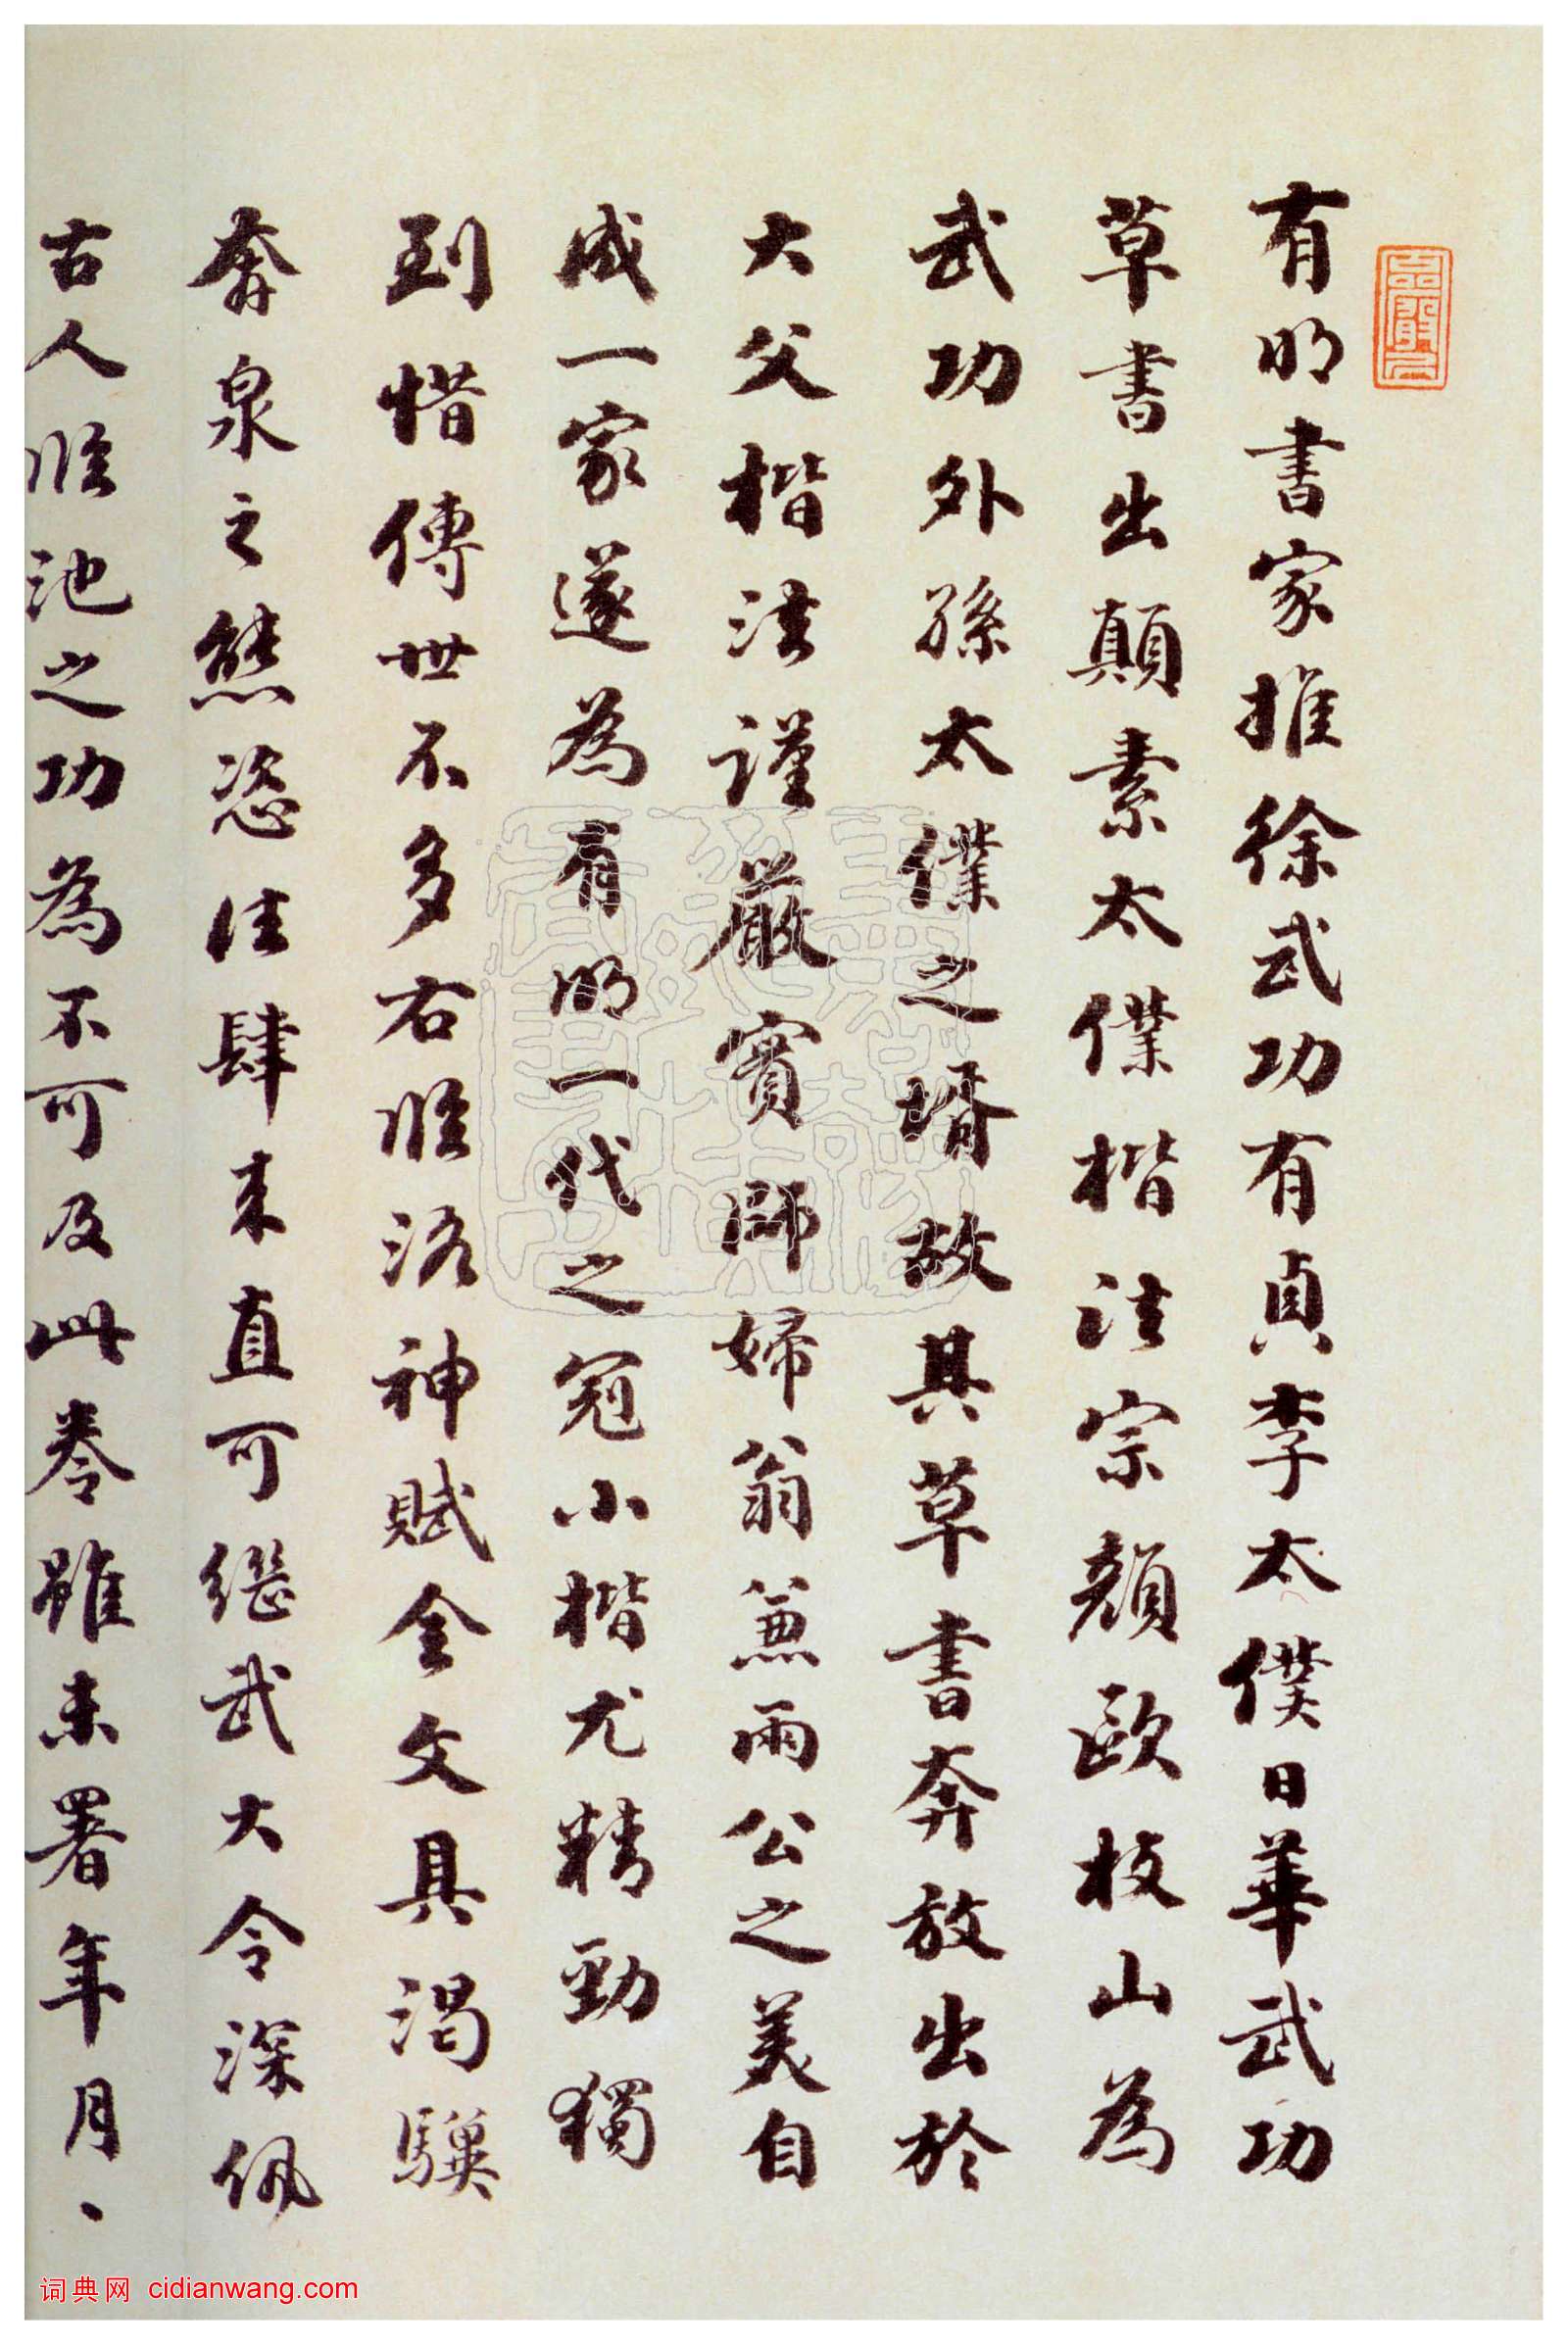 有明書家推徐武功有貞李太僕日華武功
草書出顛素太僕楷法宗顏歐枝山為
武功外孫太僕之壻故其草書奔放出於
大父楷法謹嚴實師婦翁兼兩公之美自
成一家遂為有明一代之冠小楷尤精勁獨
到惜傳世不多右臨洛神賦全文具渴驥
奔泉之態恣性肆来直可繼武大令深佩
古人臨池之功為不可及此卷雖未署年月、
词典网 cidianwang.com